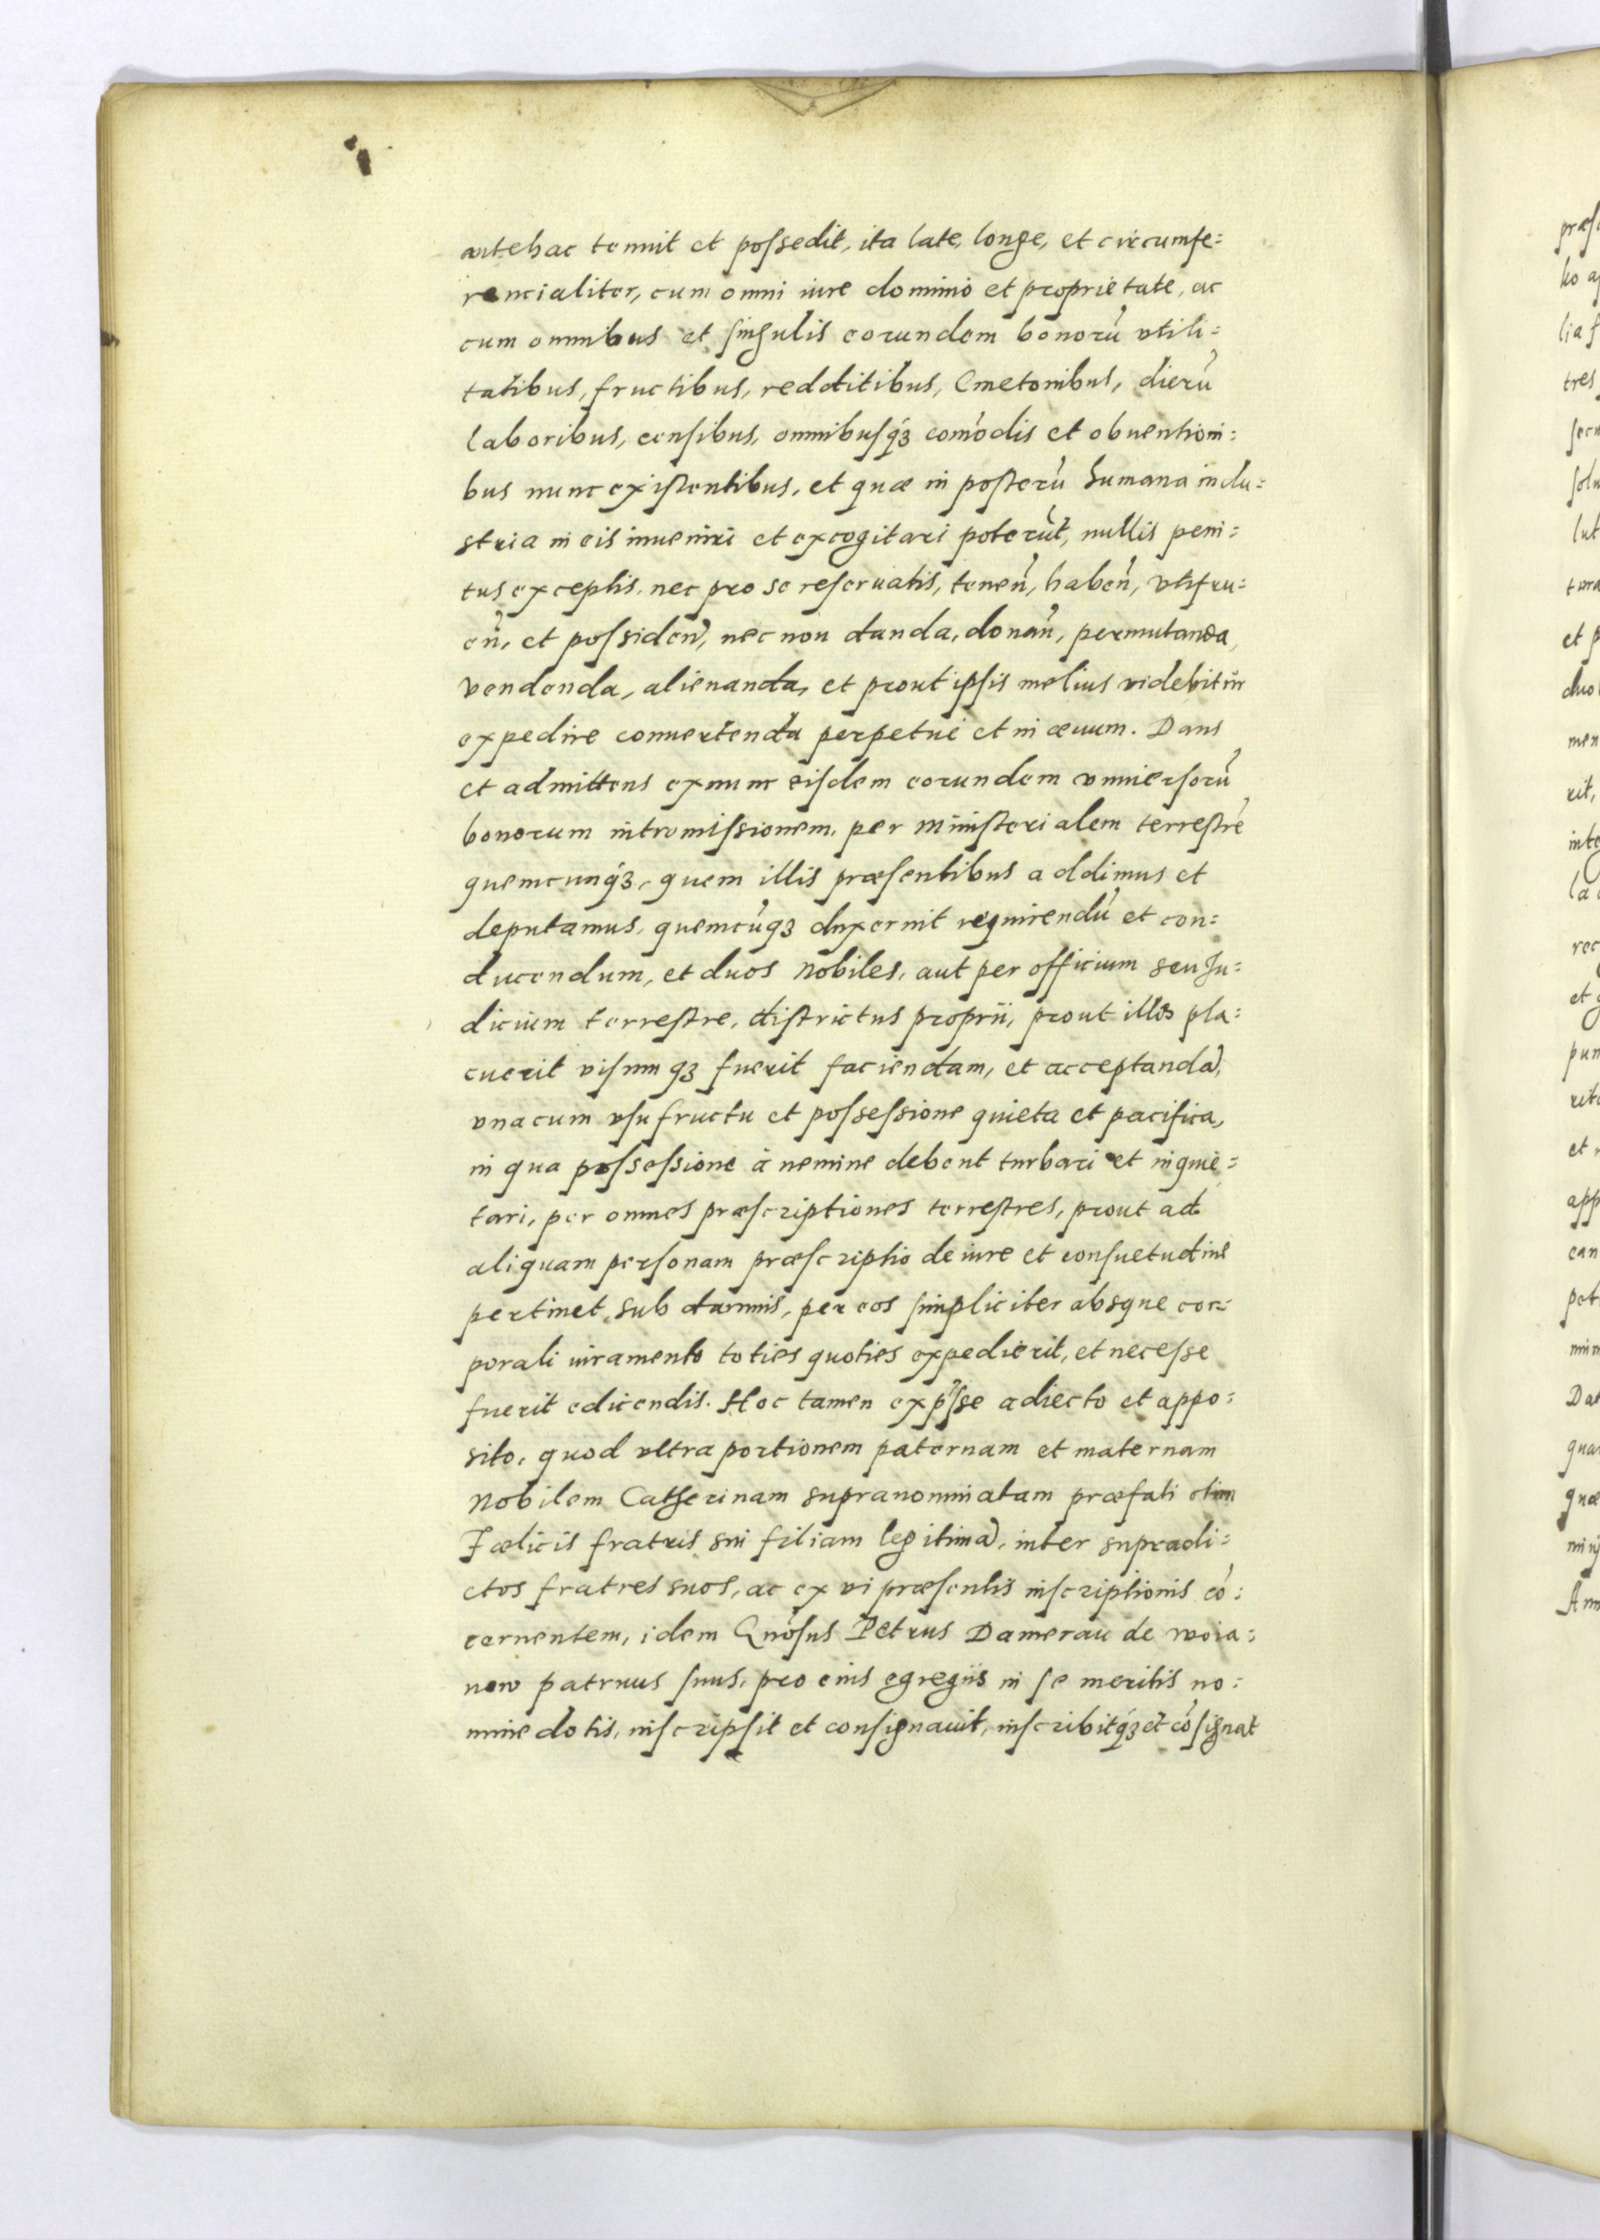 antehac tenuit et possedit, ita late, longe, et circumfe=
rencialiter, cum omni iure dominio et proprietate, ac
cum omnibus et singulis eorundem bonorũ vtili=
tatibus, fructibus, redditibus, Cmetonibus, dierũ
laboribus, censibus, omnibusq́ꝫ com̃odis et obuentioni=
bus nunc existentibus, et quæ in posterũ humana indu=
stria in eis inueniri et excogitari poterũt, nullis peni=
tus exceptis, nec pro se reseruatis, tenen̄, haben̄, vtifru=
en̄, et possiden̄, nec non danda, donan̄, permutanda,
vendenda, alienanda, et prout ipsis melius videbitur
expedire conuertenda perpetue et in æuum. Dans
et admittens exnunc eisdem eorundem vniuersorũ
bonorum intromissionem, per ministerialem terrestrẽ
quemcunq́ꝫ, quem illis præsentibus addimus et
deputamus, quemcũqꝫ duxerint requirendũ et con=
ducendum, et duos nobiles, aut per officium seu Ju=
dicium terrestre, districtus proprii, prout illis pla=
cuerit visumqꝫ fuerit faciendam, et acceptandã,
vna cum vsufructu et possessione quieta et pacifica,
in qua possessione à nemine debent turbari et inquie=
tari, per omnes præscriptiones terrestres, prout ad
aliquam personam præscriptio de iure et consuetudine
pertinet, sub damnis, per eos simpliciter absque cor=
porali iuramento toties quoties expedierit, et necesse
fuerit edicendis. Hoc tamen exp̃sse adiecto et appo=
sito, quod vltra portionem paternam et maternam
Nobilem Catherinam supranominatam præfati olim
Fælicis fratris sui filiam legitimã, inter supradi=
ctos fratres suos, ac ex vi præsentis inscriptionis cõ=
cernentem, idem Gnõsus Petrus Damerau de woia=
now patruus suus, pro eius egregiis in se meritis no=
mine dotis, inscripsit et consignauit, inscribitq́ꝫ et cõsignat